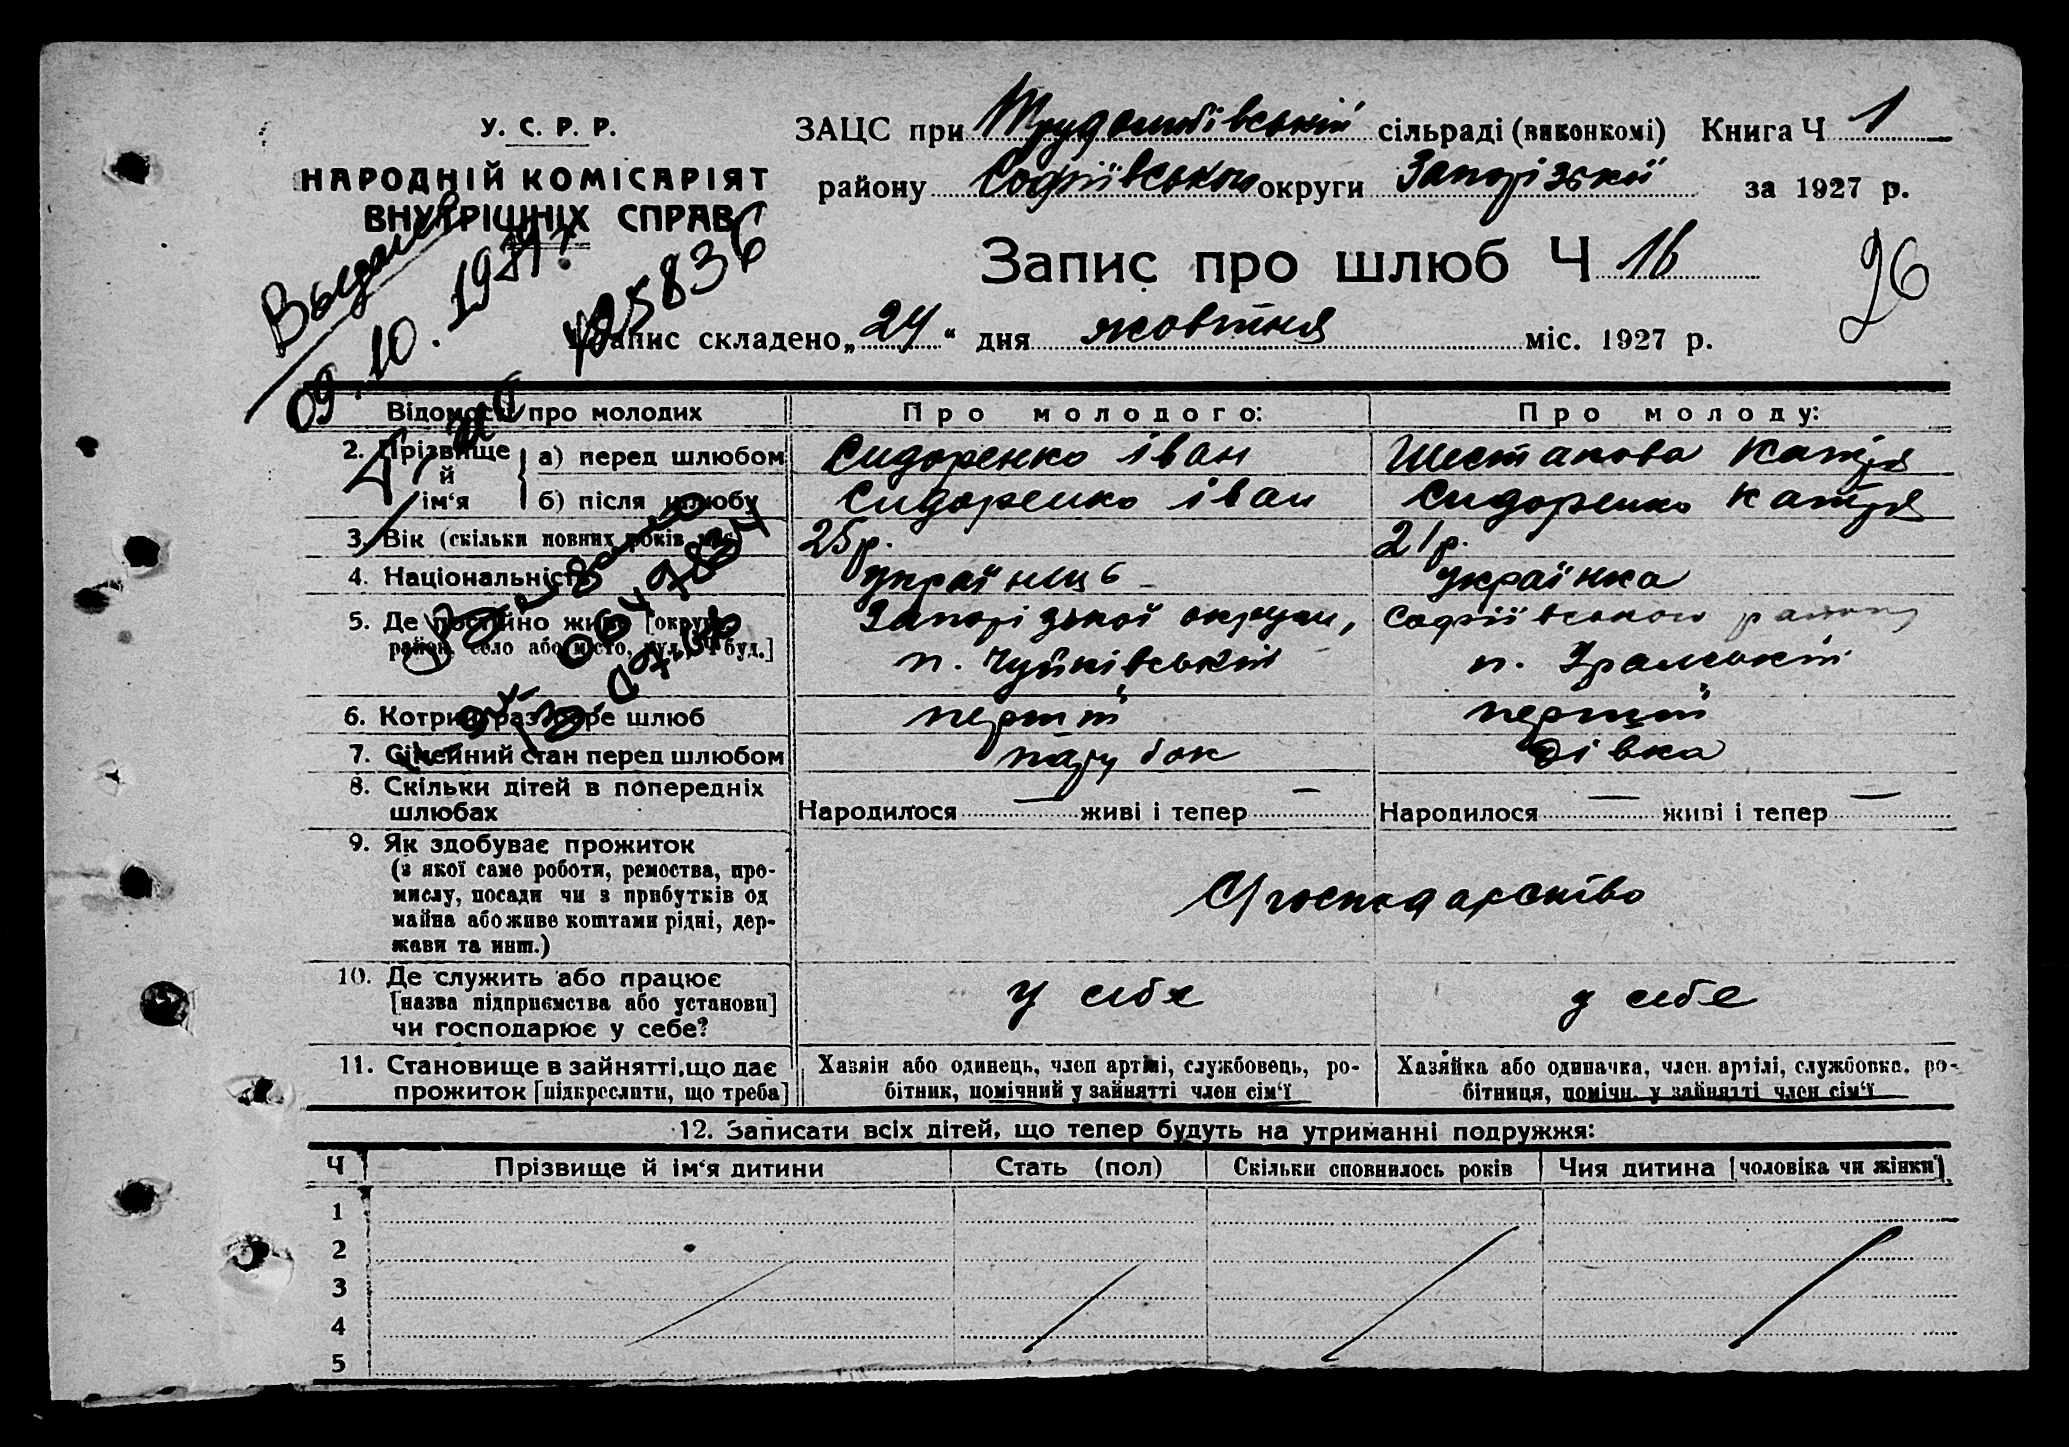 У. С. Р. Р.
НАРОДНІЙ КОМІСАРІЯТ
ВНУТРІШНІХ СПРАВ
ЗАЦС при Трудолюбівській сільраді (виконкомі) Книга Ч 1
району Софіївського округи Запорізької за 1927 р.
Запис про шлюб Ч 16
26
Запис складено „24“ дня жовтня міс. 1927 р.
09.10.
425836
Відомості про молодих Про молодого: Про молоду:
2. Прізвище й ім‘я
а) перед шлюбом Сидоренко іван Шестакова Катря
б) після шлюбу Сидоренко іван Сидоренко Катря
3. Вік (скільки повних років 25 р. 21 р.
4. Національність українець українка
5. Де постійно живе [округа, Запорізької округи, Софіївського району
район, село або місто, вул. Ч буд.] п. п.
6. Котрий раз бере шлюб перший перший
7. Сімейний стан перед шлюбом парубок дівка
8. Скільки дітей в попередніх
шлюбах Народилося — живі і тепер — Народилося — живі і тепер —
9. Як здобуває прожиток
(з якої саме роботи, ремоства, про-
мислу, посади чи з прибутків од
майна або живе коштами рідні, дер-
жави та инш.)
С/господарство
10. Де служить або працює
[назва підприємства або установи] у себе у себе
чи господарює у себе?
11. Становище в зайнятті, що дає Хазяїн або одинець, член артілі, службовець, ро- Хазяйка або одиначка, член. артілі, службовка, ро-
прожиток [підкреслити, що треба] бітник, помічний у зайнятті член сім‘ї бітниця, помічн. у зайнятті член сім‘ї
12. Записати всіх дітей, що тепер будуть на утриманні подружжя:
Ч Прізвище й ім‘я дитини Стать (пол) Скільки сповнилось років Чия дитина [чоловіка чи жінки]
1
2
3
4
5